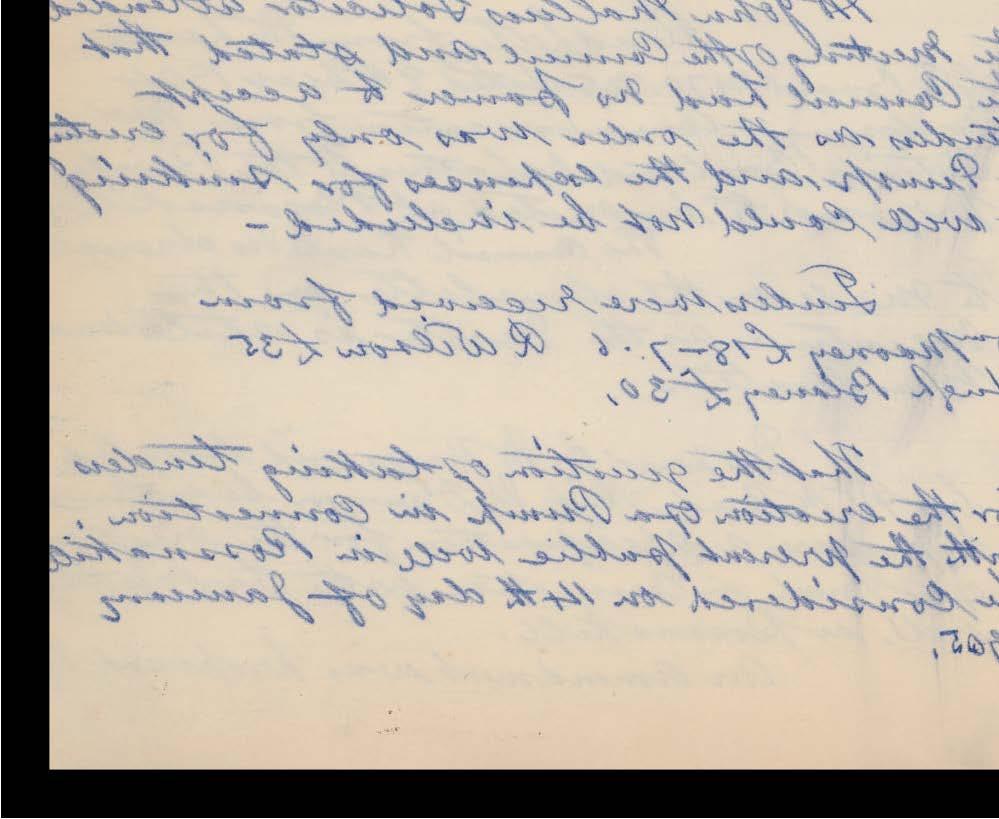 Mr John Mallins Solicitor attended
meeting of the Council and stated that
Council had no power to accept
tender as the order was only for
Pump and the expenses for sinking
well could not be included -
Tenders were received from
Mooney £18-7-6 R Wilson £35
Blaney £30.
That the question of taking tenders
the erection of a Pump in Connection
with the present public well in
Considered on 14th day of January